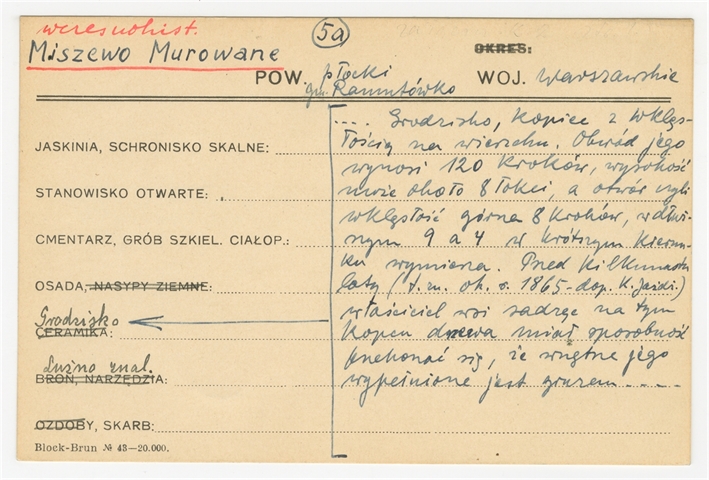 wczesnohist.
5a
Miszewo Murowane
OKRES:
POW. płocki
gm. Ramutówko
WOJ. warszawskie
.... Grodzisko, kopiec z wklęs-
łością na wierzchu. Obwód jego
JASKINIA, SCHRONISKO SKALNE:
wynosi 120 kroków, wysokość
może około 8 łokci, a otwór czyli
STANOWISKO OTWARTE:
wklęsłość górna 8 kroków, w dłuż-
szym 9 a 4 w krótszym kierun-
CMENTARZ, GRÓB SZKIEL. CIAŁOP.:
ku wymierza. Przed kilkunastu
laty (t. zn. ok. r. 1865 - dop. K. Jażdż.)
OSADA, NASYPY ZIEMNE:
właściciel wsi sadząc na tym
Grodzisko
CERAMIKA:
kopcu drzewa miał sposobność
przekonać się, że wnętrze jego
Luźno znal.
BROŃ, NARZĘDZIA:
wypełnione jest gruzem ....
OZDOBY, SKARB:
Block-Brun № 43—20.000.